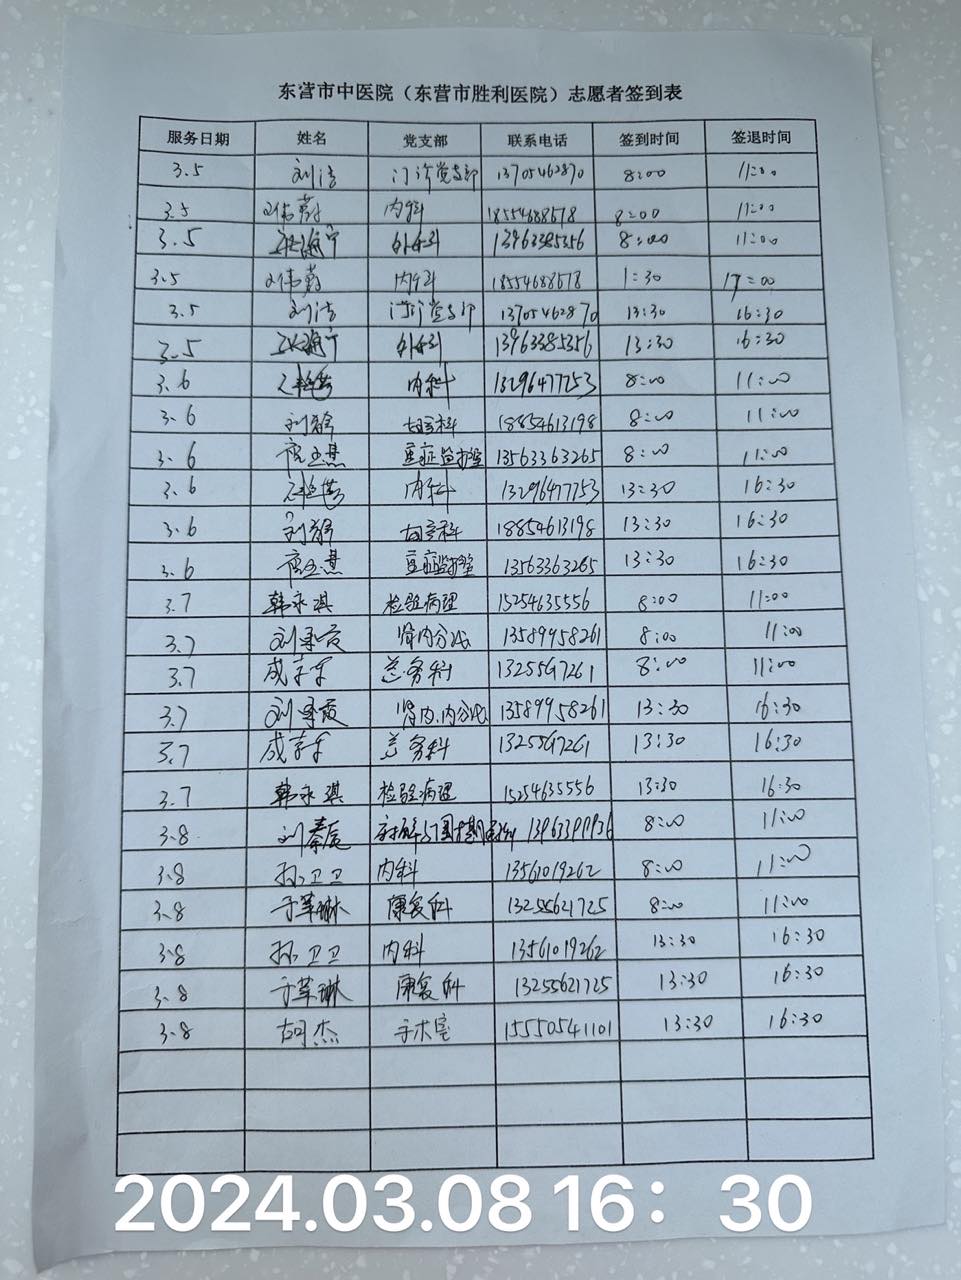 东营市中医院（东营市胜利医院）志愿者签到表
服务日期 姓名 党支部 联系电话 签到时间 签退时间
3.5 刘洁 门诊党支部 13705462870 8:00 11:00
3.5 刘伟蔚 内科 18554688678 8:00 11:00
3.5 外科 13963385356 8:00 11:00
3.5 刘伟蔚 内科 18554688678 1:30 17:00
3.5 刘洁 门诊党支部 13705462870 13:30 16:30
3.5 外科 13963385356 13:30 16:30
3.6 内科 13296477253 8:00 11:00
3.6 刘静 妇产科 18854613198 8:00 11:00
3.6 重症监护室 13563363265 8:00 11:00
3.6 内科 13296477253 13:30 16:30
3.6 刘静 妇产科 18854613198 13:30 16:30
3.6 重症监护室 13563363265 13:30 16:30
3.7 韩永琪 检验病理 15254635556 8:00 11:00
3.7 刘 霞 肾内分泌 13589958261 8:00 11:00
3.7 总务科 13255597261 8:00 11:00
3.7 刘 霞 肾内.内分泌 13589958261 13:30 16:30
3.7 总务科 13255597261 13:30 16:30
3.7 韩永琪 检验病理 15254635556 13:30 16:30
3.8 刘秦辰 8:00 11:00
3.8 孙卫卫 内科 13561019262 8:00 11:00
3.8 于草琳 康复科 13255621725 8:00 11:00
3.8 孙卫卫 内科 13561019262 13:30 16:30
3.8 于草琳 康复科 13255621725 13:30 16:30
3.8 胡杰 手术室 15550541101 13:30 16:30
2024.03.08 16：30